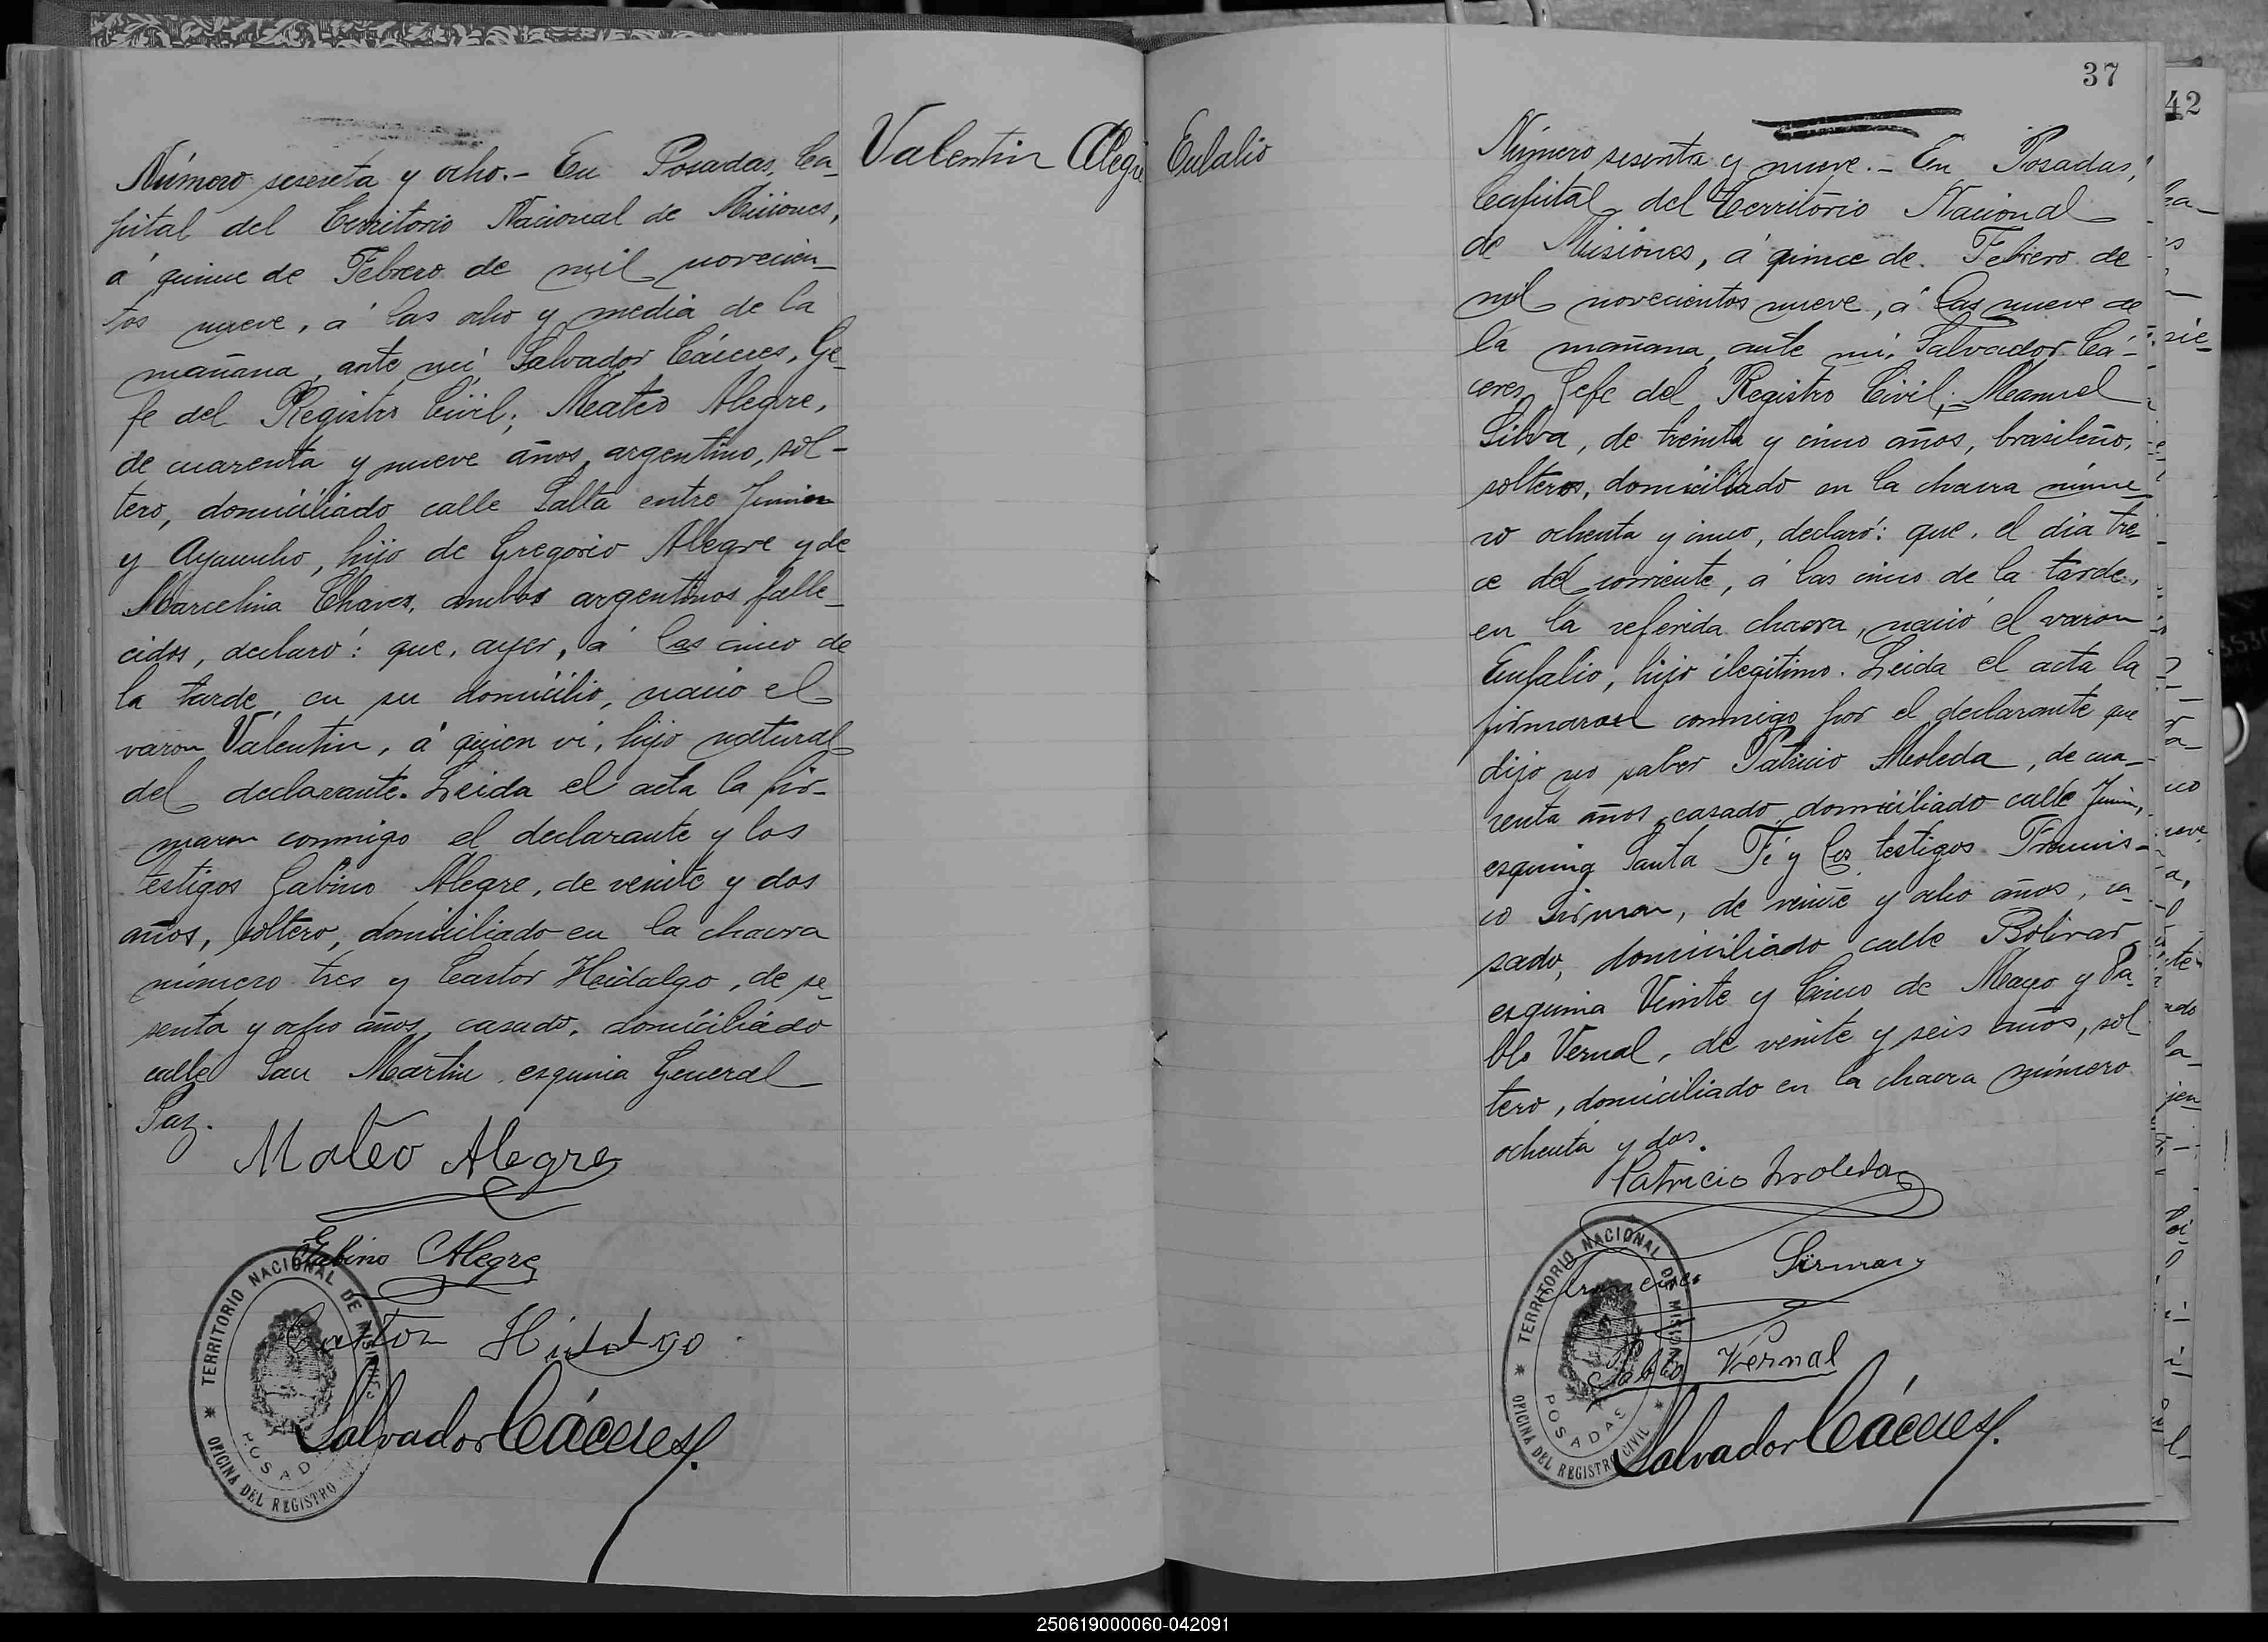 Número sesenta y ocho.- En Posadas, Ca-
pital del Territorio Nacional de Misiones,
á quince de Febrero de mil novecien-
tos nueve, á las ocho y media de la
mañana, ante mí Salvador Cáceres, Ge-
fe del Registro Civil; Mateo Alegre,
de cuarenta y nueve años, argentino, sol-
tero, domiciliado calle Salta entre Junin
y Ayacucho, hijo de Gregorio Alegre y de
Marcelina Chaves, ambos argentinos falle-
cidos, declaró: que, ayer, á las cinco de
la tarde, en su domicilio, nació el
varon Valentin, á quien vi, hijo natural
del declarante. Leida el acta la fir-
maron conmigo el declarante y los
testigos Gabino Alegre, de veinte y dos
años, soltero, domiciliado en la chacra
número tres y Castor Heidalgo, de se-
senta y ocho años, casado, domiciliado
calle San Martin esquina General
Paz.
Mateo Alegre
Gabino Alegre
Castor Hidalgo
Salvador Cáceres
TERRITORIO NACIONAL DE MISIONES
POSADAS
OFICINA DEL REGISTRO
Valentin Alegre
Eulalio
37
Número sesenta y nueve.- En Posadas,
Capital del Territorio Nacional
de Misiones, á quince de Febrero de
mil novecientos nueve, á las nueve de
la mañana, ante mí, Salvador Cá-
ceres, Gefe del Registro Civil; Manuel
Silva, de treinta y cinco años, brasileño,
soltero, domiciliado en la chacra núme-
ro ochenta y cinco, declaró: que, el dia tre-
ce del corriente, á las cinco de la tarde,
en la referida chacra, nació el varon
Eulalio, hijo ilegitimo. Leida el acta la
firmaron conmigo por el declarante que
dijo no saber Patricio Moleda, de cua-
renta años, casado, domiciliado calle Junin,
esquina Santa Fé y los testigos Francis-
co Sirman, de veinte y ocho años, ca-
sado, domiciliado calle Bolivar
esquina Veinte y Cinco de Mayo y Pa-
blo Vernal, de veinte y seis años, sol-
tero, domiciliado en la chacra número
ochenta y dos.
Patricio Moleda
Francisco Sirman
Pablo Vernal
Salvador Cáceres
TERRITORIO NACIONAL DE MISIONES
POSADAS
OFICINA DEL REGISTRO CIVIL
42
250619000060-042091